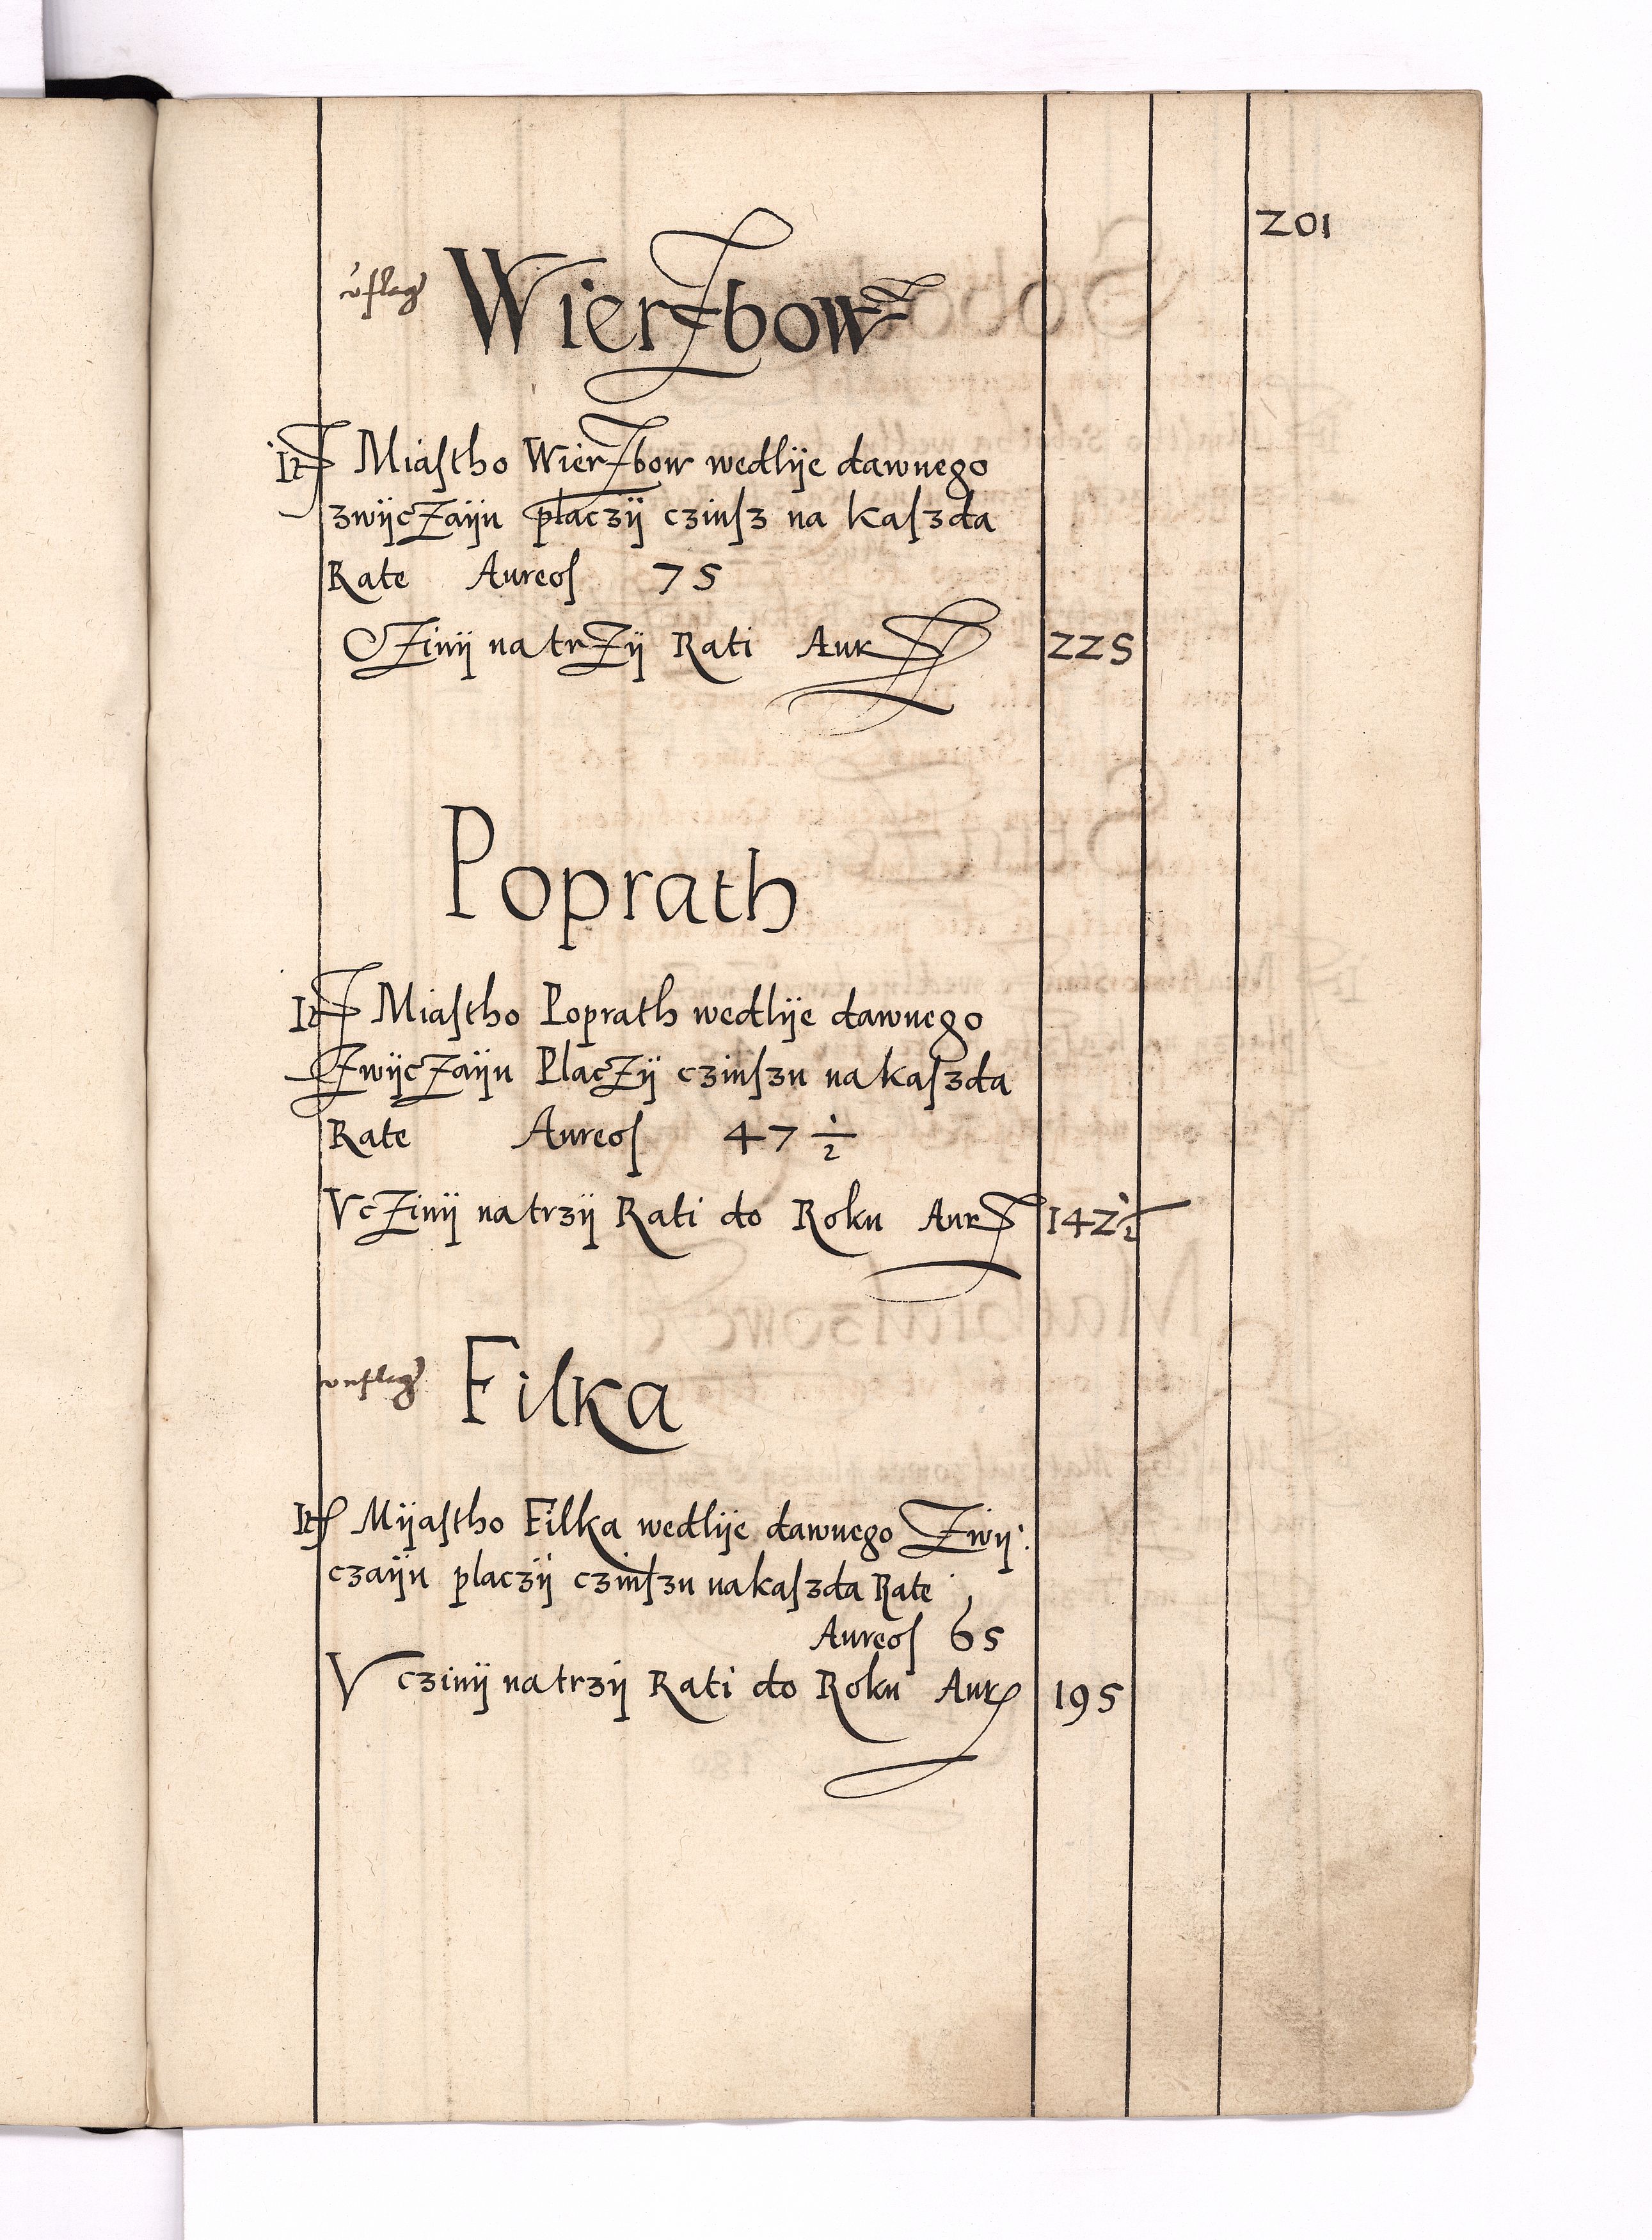 201
Wierzbow
It Miaſtho Wierzbow wedlije dawnego
zwijczaiju placzij czinſz na kaſzda
Rate Aureoſ 75
Czinij na trzij Rati Aur 225
Poprath
It Miaſtho Poprath wedlije dawnego
Zwijczaiju Placzij czinſzu na kaſzda
Rate Aureoſ 47 1/2
Vczinij na trzij Rati do Roku Aur 142 1/2
Filka
It Mijaſtho Filka wedlije dawnego Zwij:
czaiju placzij czinſzu na kaſzda Rate
Aureoſ 65
Vczinij na trzij Rati do Roku Aur 195